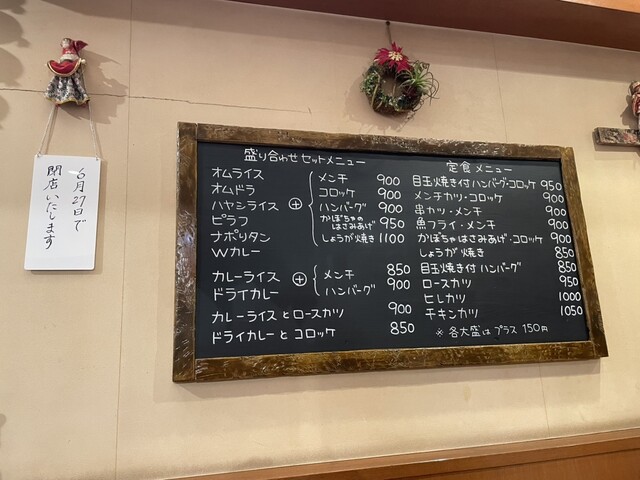 6月27日で
閉店いたします
盛り合わせセットメニュー
オムライス
オムドラ
ハヤシライス
ピラフ
ナポリタン
Wカレー
+
メンチ 900
コロッケ 900
ハンバーグ 900
かぼちゃのはさみあげ 950
しょうが焼き 1100
カレーライス
ドライカレー
+
メンチ 850
ハンバーグ 900
カレーライスとロースカツ 900
ドライカレーとコロッケ 850
定食メニュー
目玉焼き付ハンバーグ・コロッケ 950
メンチカツ・コロッケ 900
串カツ・メンチ 900
魚フライ・メンチ 900
かぼちゃはさみあげ・コロッケ 900
しょうが焼き 850
目玉焼き付ハンバーグ 850
ロースカツ 950
ヒレカツ 1000
チキンカツ 1050
※各大盛はプラス150円